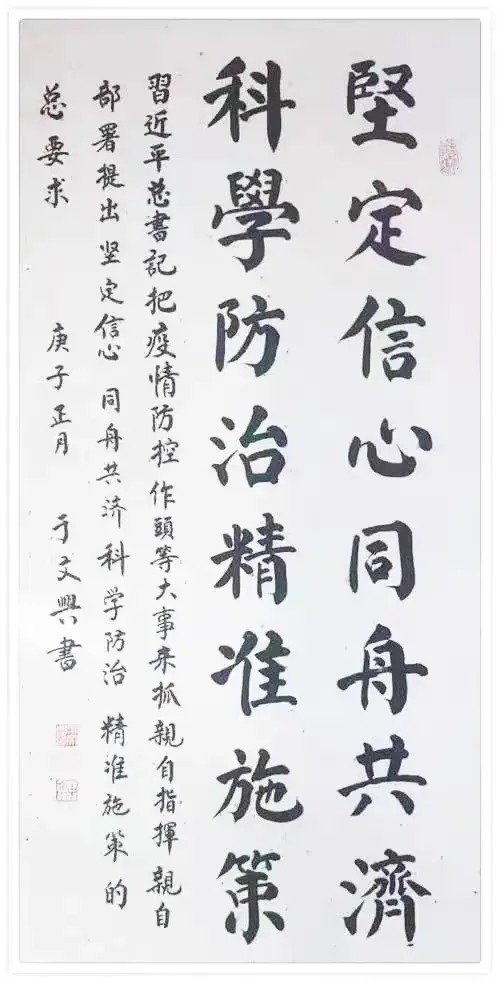 堅定信心同舟共濟
科學防治精准施策
習近平总書記把疫情防控作頭等大事来抓親自指揮親自
部署提出坚定信心 同舟共济科学防治 精准施策的
总要求 庚子正月 于文興書